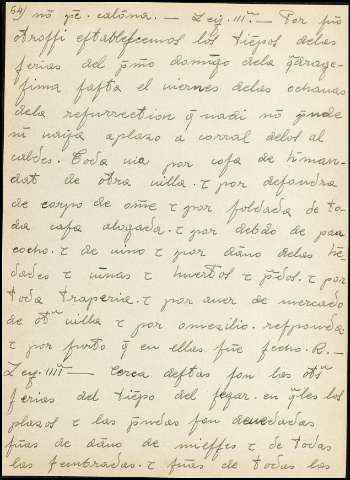 54) nõ pẽ. calõna. — Leẏ. IIIª. — Por fũo
otroffi eftablefcemos los tiẽpos delas
ferias del p̃mo domĩgo dela q̃rage-
fima fafta el viernes delas ochauas
dela refurrection q̃ nadi nõ p̃nde
ni vaẏa aplazo a corral delos al
caldes. Toda via por cofa de hman-
dat de otra villa. τ por defondra
de corpo de om̃e τ por foldada de to-
da cafa alogada. τ por debdo de pan
cocho. τ de uino τ por dãno delas h̃e
dades τ uinas τ huertos τ p̃dos. τ por
toda traperia. τ por auer de mercado
de otª uilla τ por omezilio. refponda.
τ por furto q̃ en ellas fue fecho. R. —
Leẏ. IIIIª — Cerca deftas fon las otªs
ferias del tiẽpo del fegar. en q̃les los
plazos τ las p̃ndas fon deuedadas
fuas de dãno de mieffes τ de todas
las fembradas. τ fuas de todas las